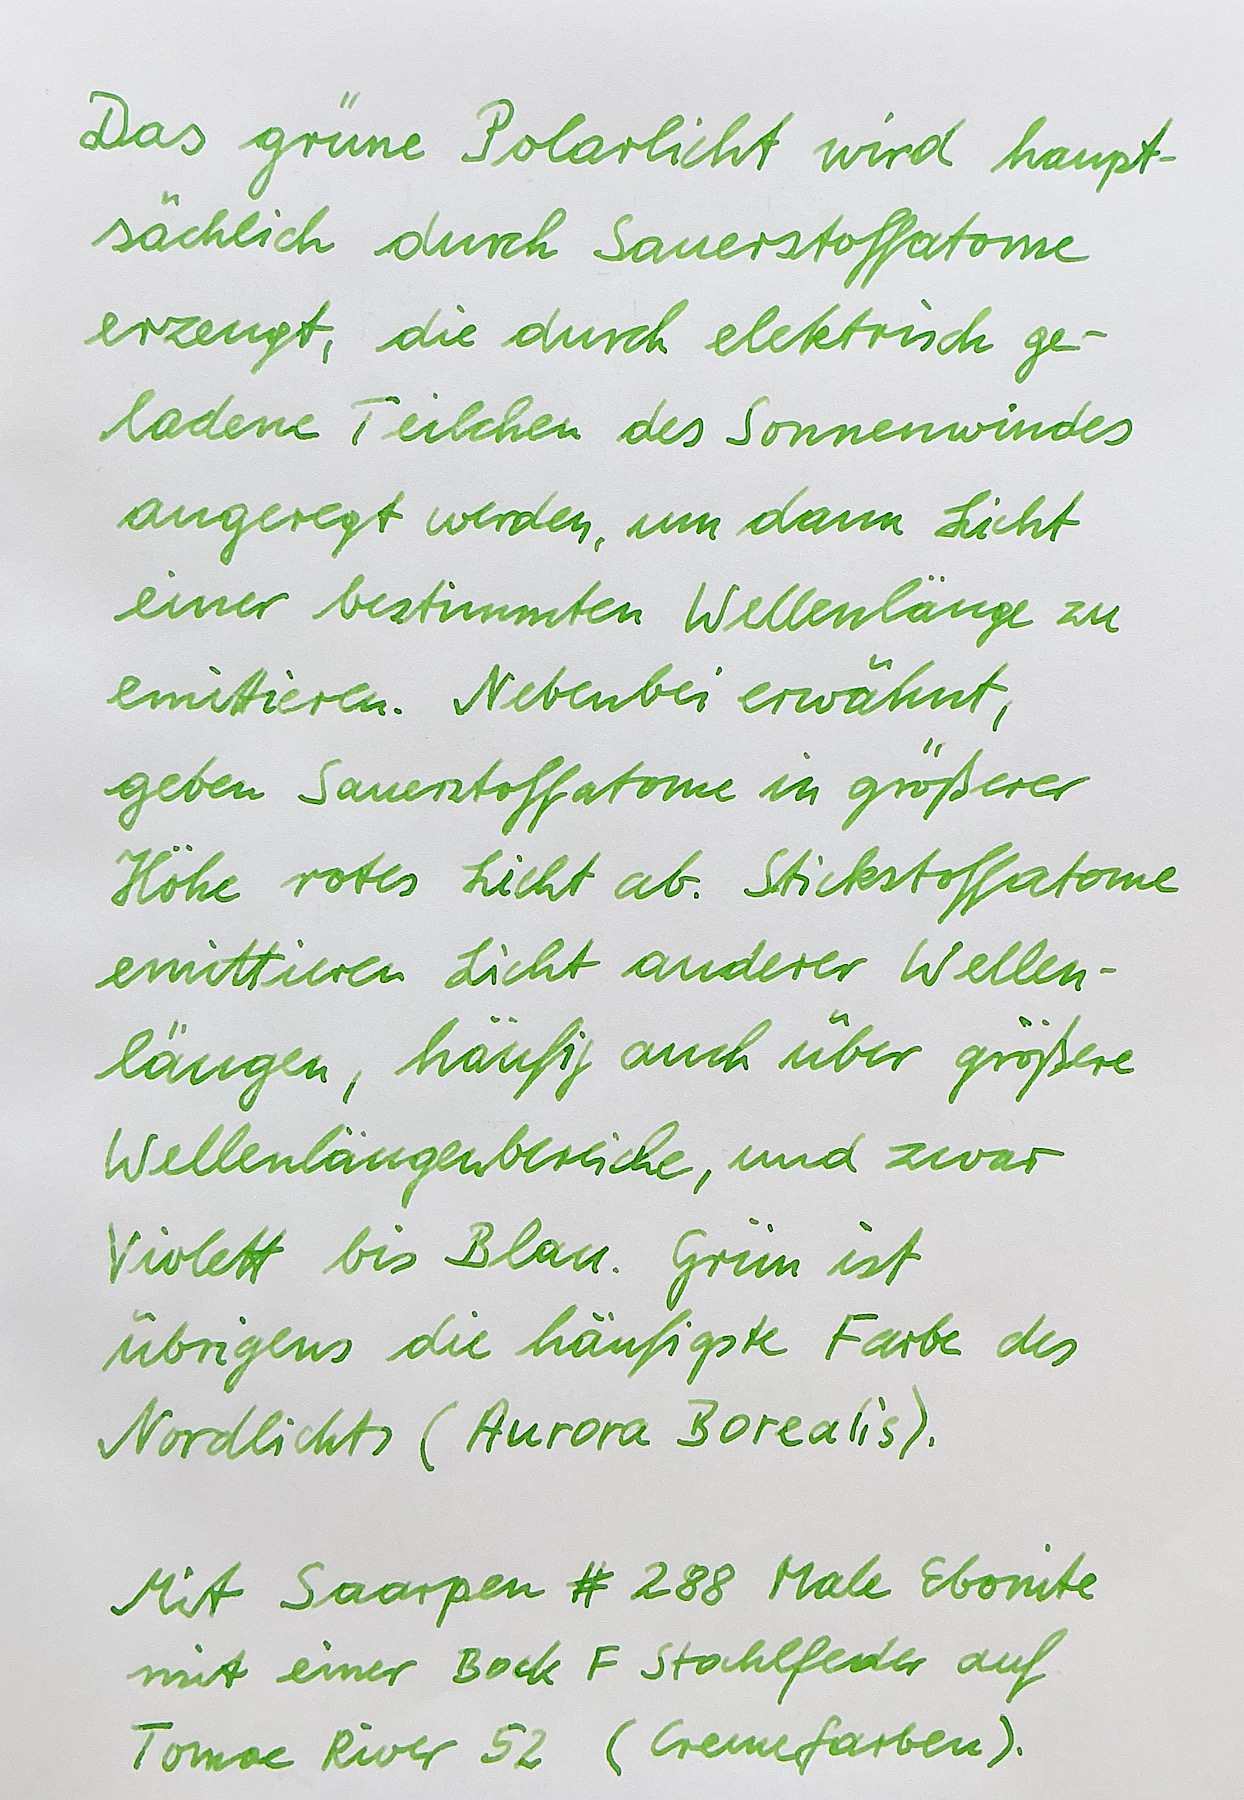 Das grüne Polarlicht wird haupt-
sächlich durch Sauerstoffatome
erzeugt, die durch elektrisch ge-
ladene Teilchen des Sonnenwindes
angeregt werden, um dann Licht
einer bestimmten Wellenlänge zu
emittieren. Nebenbei erwähnt,
geben Sauerstoffatome in größerer
Höhe rotes Licht ab. Stickstoffatome
emittieren Licht anderer Wellen-
längen, häufig auch über größere
Wellenlängenbereiche, und zwar
Violett bis Blau. Grün ist
übrigens die häufigste Farbe des
Nordlichts (Aurora Borealis).
Mit Saarpen # 288 Male Ebonite
mit einer Bock F Stahlfeder auf
Tomoe River 52 (Cremefarben).